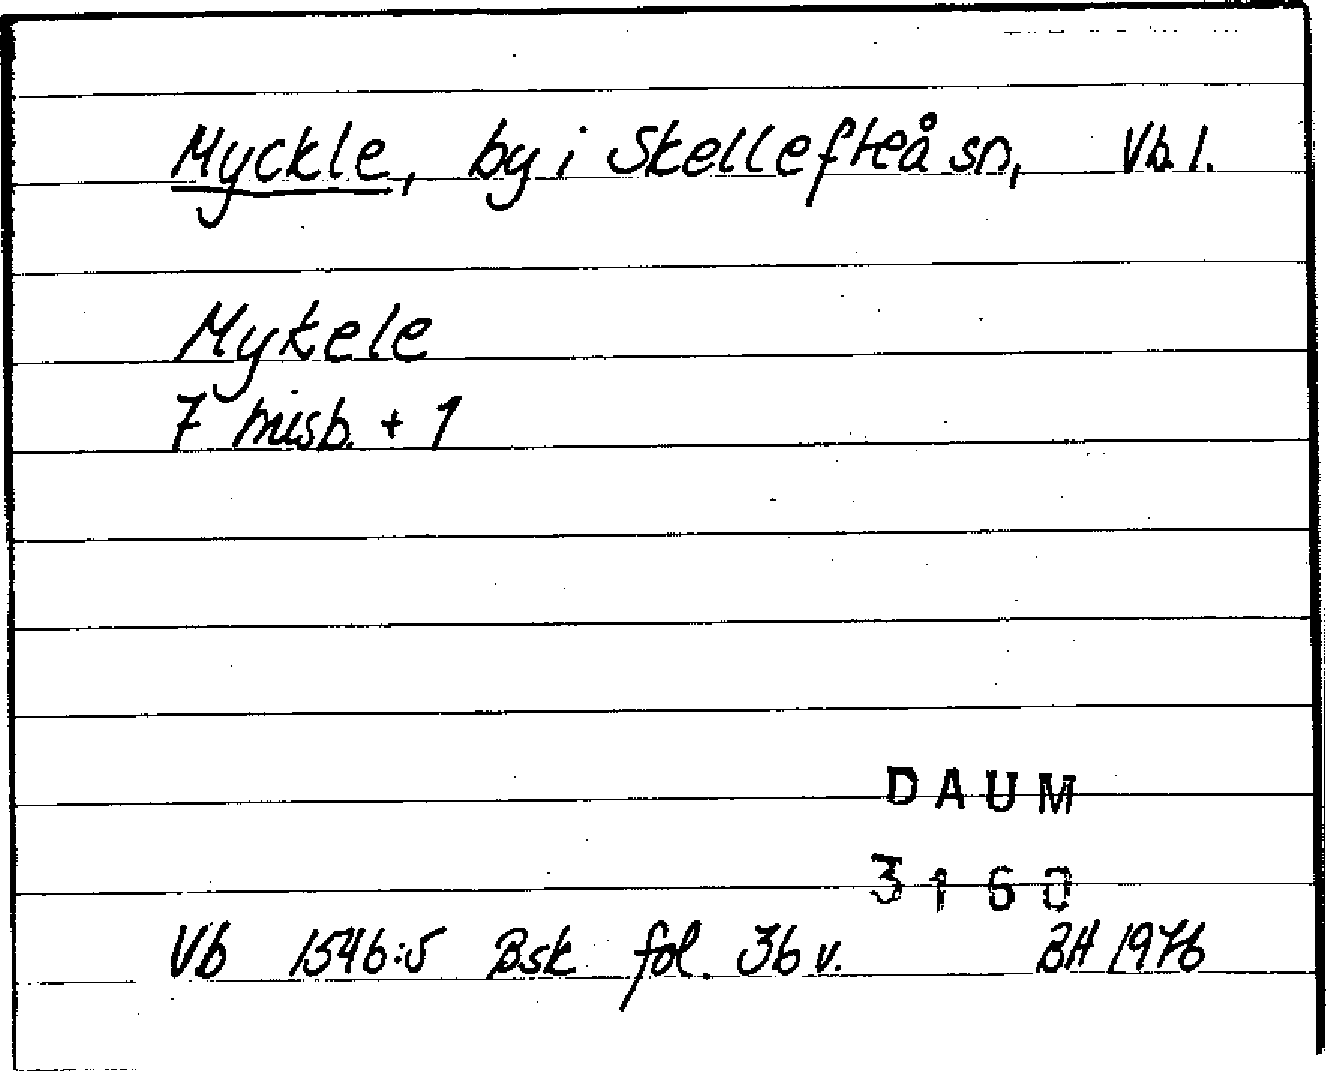 Myckle, by i Skellefteå sn, Vb. l.
Mykele
7 misb. + 1
DAUM
3160
Vb 1546:5 Bsk fol. 36 v. BH 1976